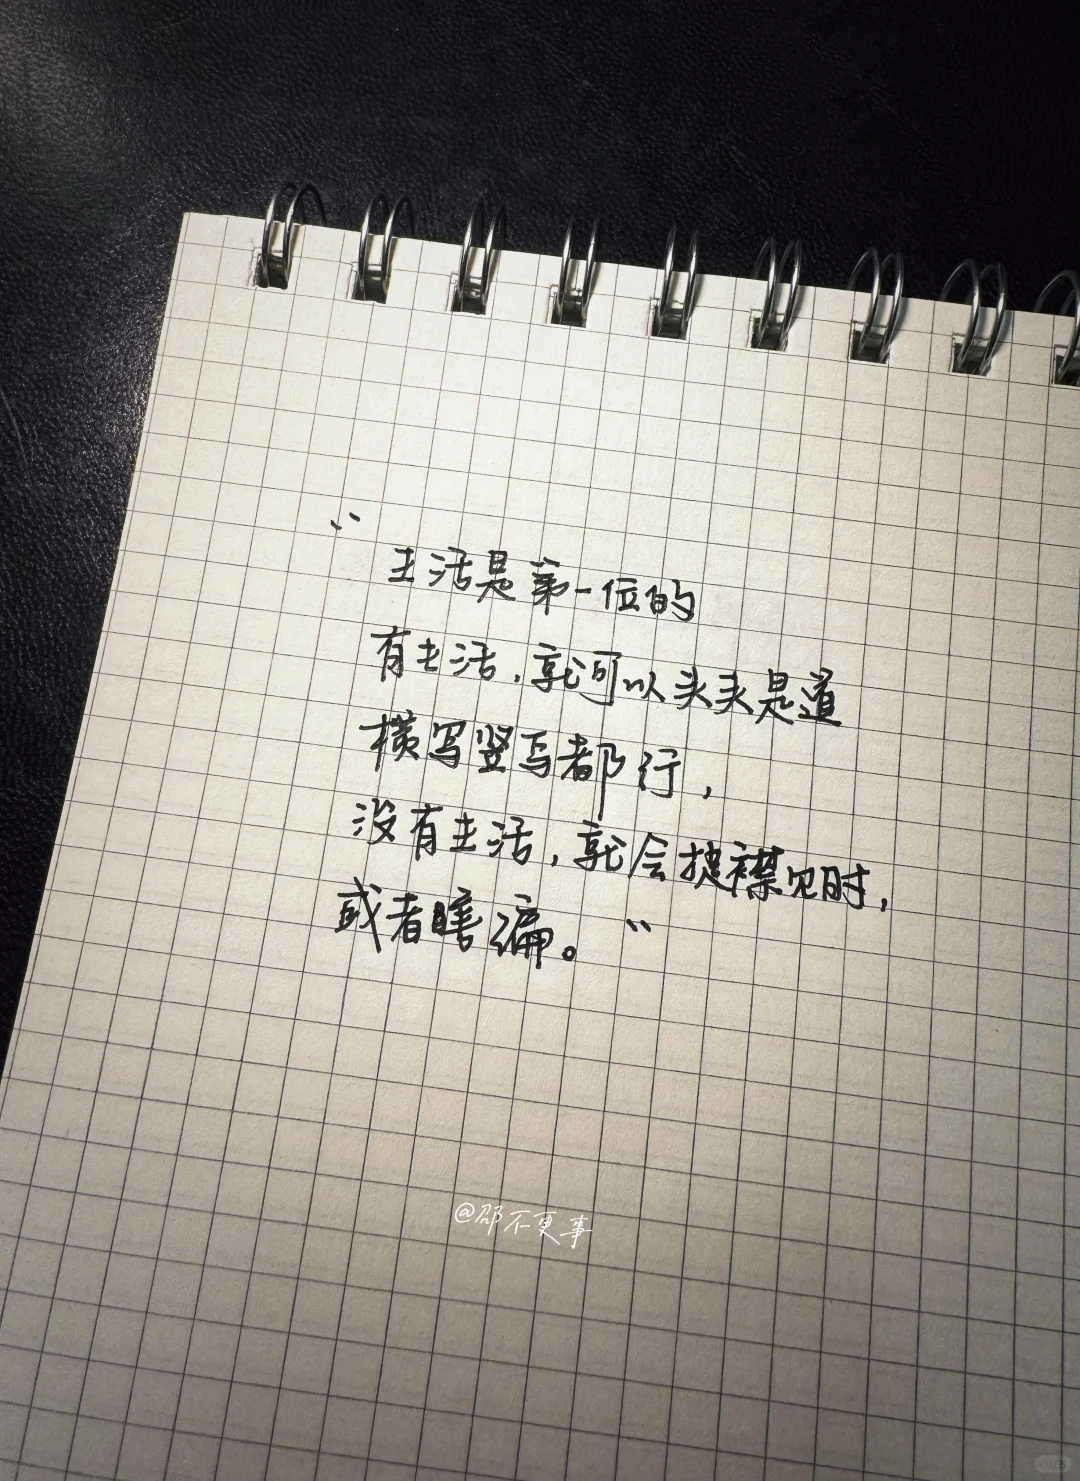 “生活是第一位的
有生活，就可以头头是道
横写竖写都行，
没有生活，就会捷襟见时，
或者瞎编。”
@邵不更事